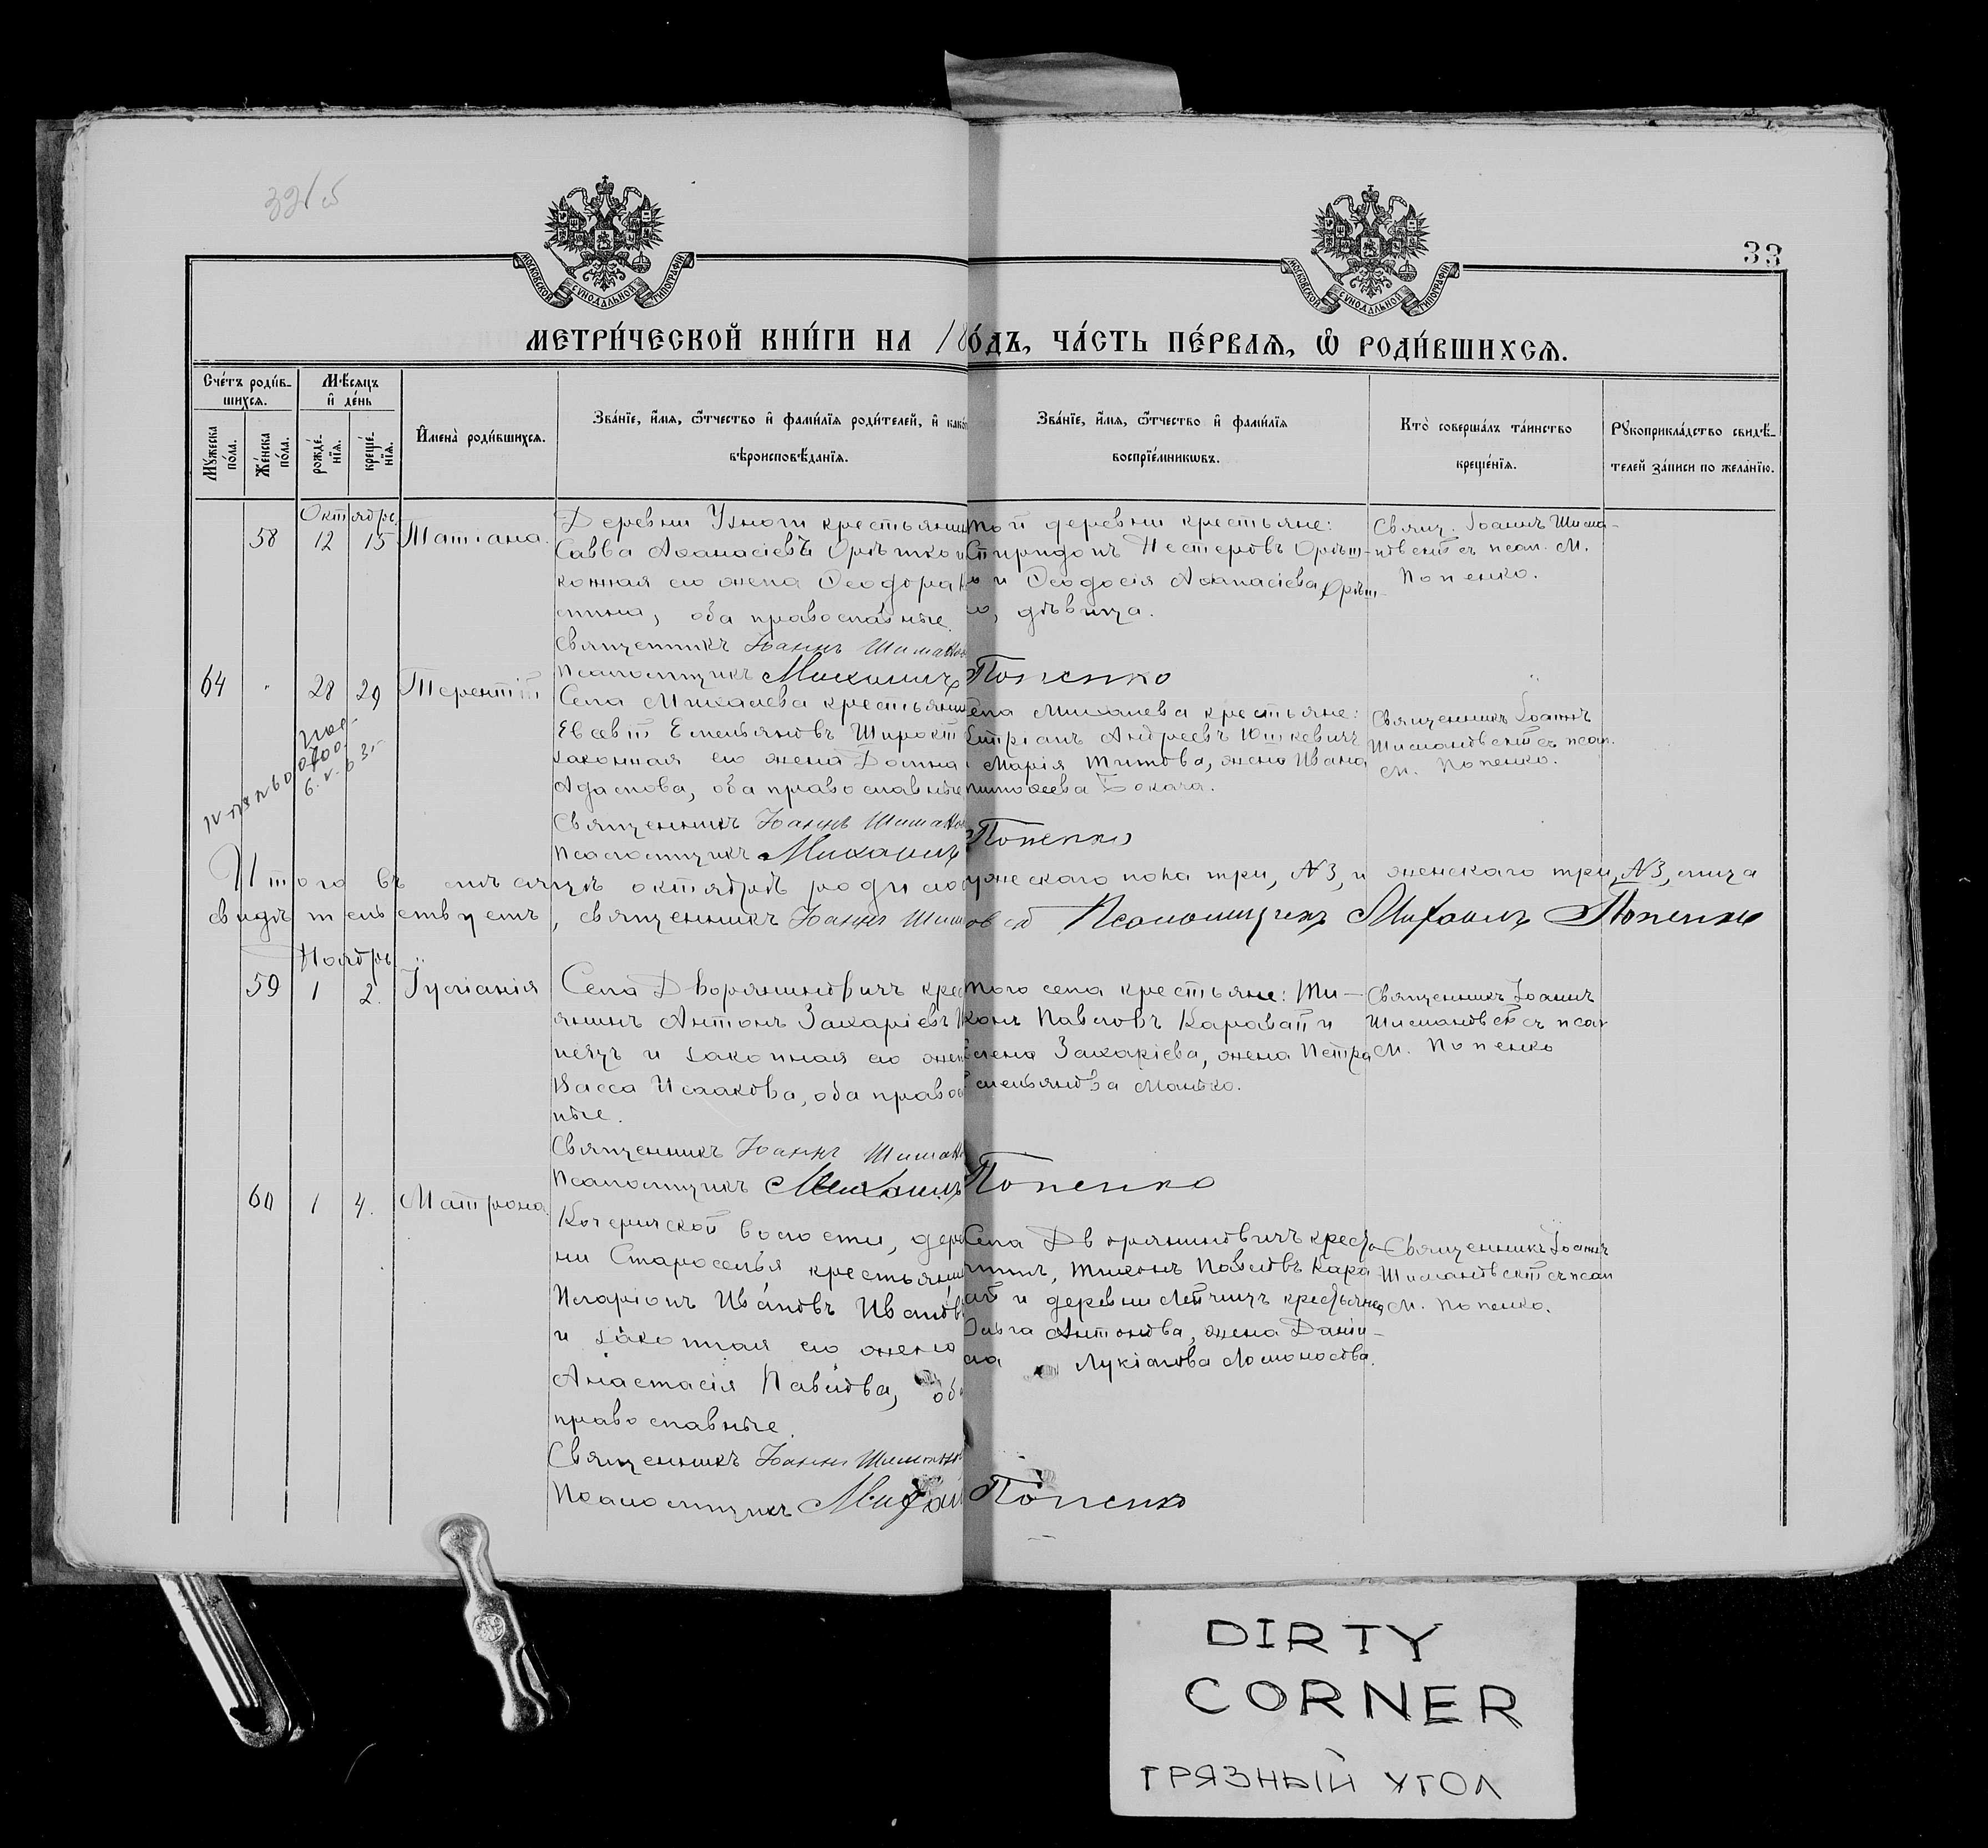 33
МОСКОВСКОЙ СУНОДАЛЬНОЙ ТИПОГРАФІИ
МОСКОВСКОЙ СУНОДАЛЬНОЙ ТИПОГРАФІИ
МЕТРИ́ЧЕСКОЙ КНИ́ГИ НА 18
О́ДЪ, ЧА́СТЬ ПЕ́РВАѦ, Ѡ҆ РОДИ́ВШИХСѦ.
Сче́тъ роди́в-
шихсѧ.
Мѣ́сѧцъ
и҆ де́нь
Мꙋ́жеска
по́ла.
Же́нска
по́ла.
рожде́-
нїѧ.
креще́-
нїѧ.
И҆мена̀ роди́вшихсѧ.
Зва́нїе, и҆́мѧ, ѻ҆́тчество и҆ фами́лїѧ роди́телей, и҆ како́
вѣроисповѣ́данїѧ.
Зва́нїе, и҆́мѧ, ѻ҆́тчество и҆ фами́лїѧ
воспрїе́мникѡвъ.
Кто̀ соверша́лъ та́инство
креще́нїѧ.
Рꙋкоприкла́дство свидѣ́-
телей за́писи по жела́нїю.
Октябрь
58 12 15 Татіана.
Деревни Узноги крестьянин
Савва Аѳанасіевъ Орѣшко и
конная его жена Ѳеодора
стина, оба православные.
Священникъ Іоаннъ Шиман
Псаломщикъ Михаилъ
той деревни крестьяне:
Спиридонъ Нестеровъ Орѣш-
о и Ѳеодосія Аѳанасіева Орѣш-
о, дѣвица.
Попенко
Свящ. Іоаннъ Шима-
новскій съ псал. М.
Попенко.
64 " 28 29 Терентій
Села Михалева крестьянин
Евсевій Емельяновъ Широкій
законная его жена Домна
Адамова, оба православные
Священникъ Іоаннъ Шиман
Псаломщикъ Михаилъ
ела Михалева крестьяне:
Андреевъ Юшкевичъ
Марія Титова, жена Ивана
Тимоѳеева Бокача.
Попенко
Священникъ Іоаннъ
Шимановскій съ псал.
М. Попенко.
Итого въ мѣсяцѣ октябрѣ родилос
ужескаго пола три, №3, и женскаго три, №3,
свидѣтельствуетъ, священникъ Іоаннъ Шиман
овскій Псаломщикъ Михаилъ Попенко
Ноябрь
59 1 2. Іуліанія
Села Дворяниновичъ крес
янинъ Антонъ Захаріевъ
пецъ и законная его жена
Васса Исаакова, оба правос
ные.
Священникъ Іоаннъ Шиман
Псаломщикъ Михаилъ
того села крестьяне: Ти-
хонъ Павловъ Каравай и
Елена Захаріева, жена Петра
Емельянова Манько.
Попенко
Священникъ Іоаннъ
Шимановскій съ псал
М. Попенко
60 1 4. Матрона.
Кочеричской волости, дере
ни Староселья крестьянин
Иларіонъ Ивановъ Иванов
и законная его жена
Анастасія Павлова, оба
православные.
Священникъ Іоаннъ Шиманов
Псаломщикъ Михаи
Села Дворяниновичъ крестья
нинъ, Тихонъ Павловъ Кара
ай и деревни крестьянка
Ольга Антонова, жена Дании-
ла Лукіанова Ломоносова.
Попенко
Священникъ Іоаннъ
Шимановскій съ псал
М. Попенко.
DIRTY
CORNER
ГРЯЗНЫЙ УГОЛ